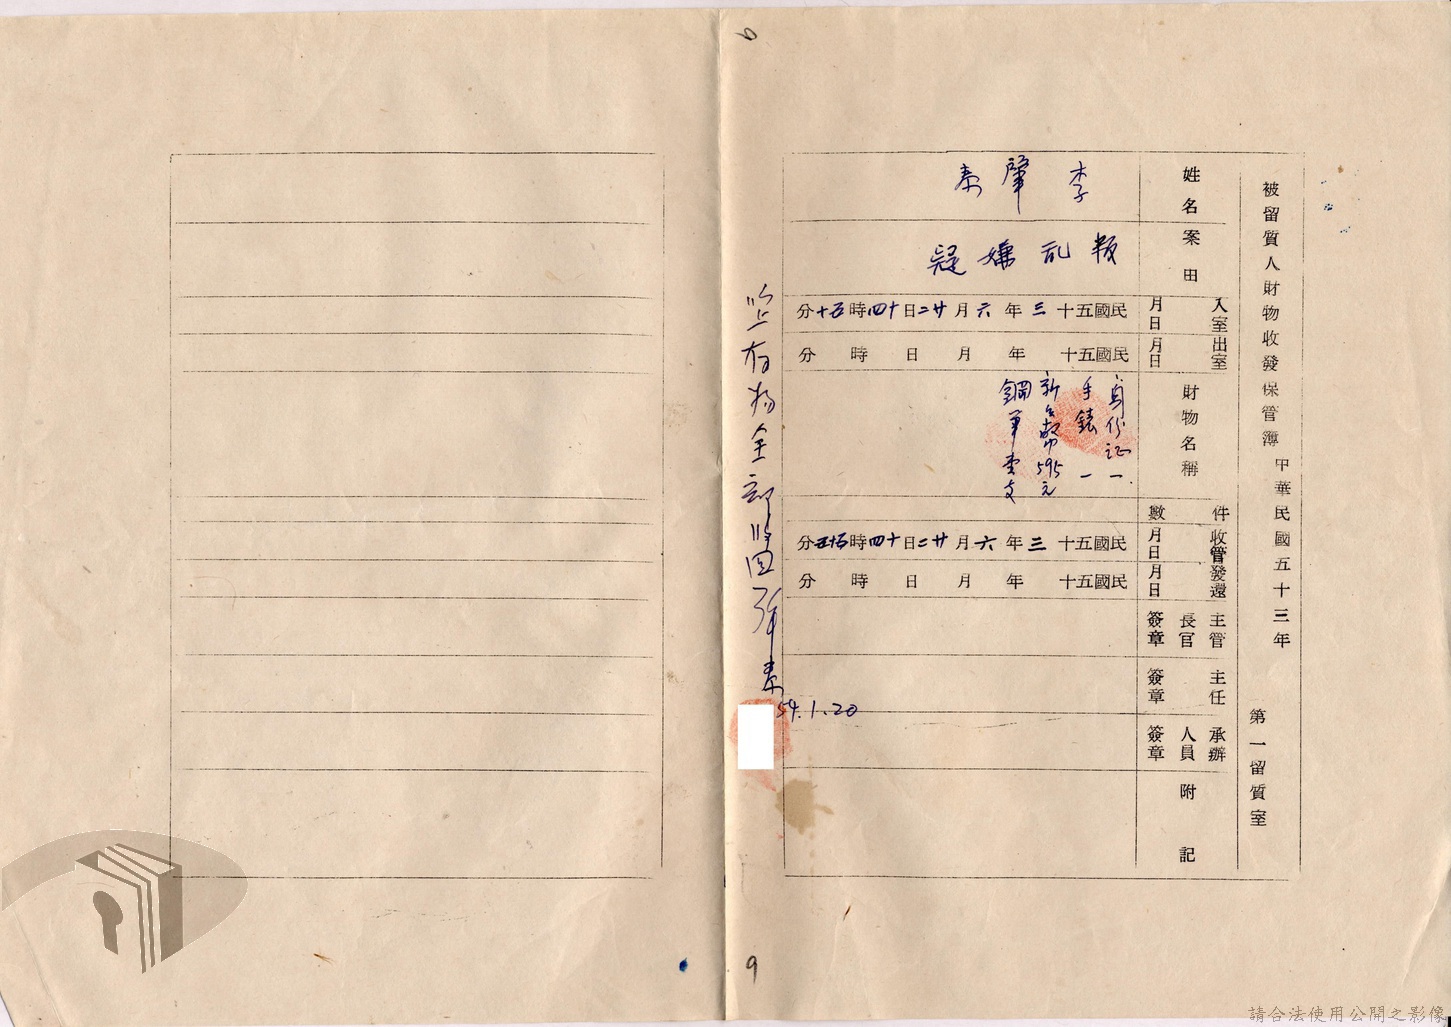 被留質人財物收發保管簿
中華民國五十三年
第一留質室
姓名
李肇泰
案由
叛乱嫌疑
入室月日
民國五十三年六月廿二日十四時五十分
出室月日
民國五十年月日時分
財物名稱
身份证一
手錶一
新台幣595元
鋼筆壹支
件數
收管月日
民國五十三年六月廿二日十四時五十五分
發還月日
民國五十年月日時分
主管長官簽章
主任簽章
承辦人員簽章
附記
以上存物全部收回 李肇泰
54.1.20
9
請合法使用公開之影像